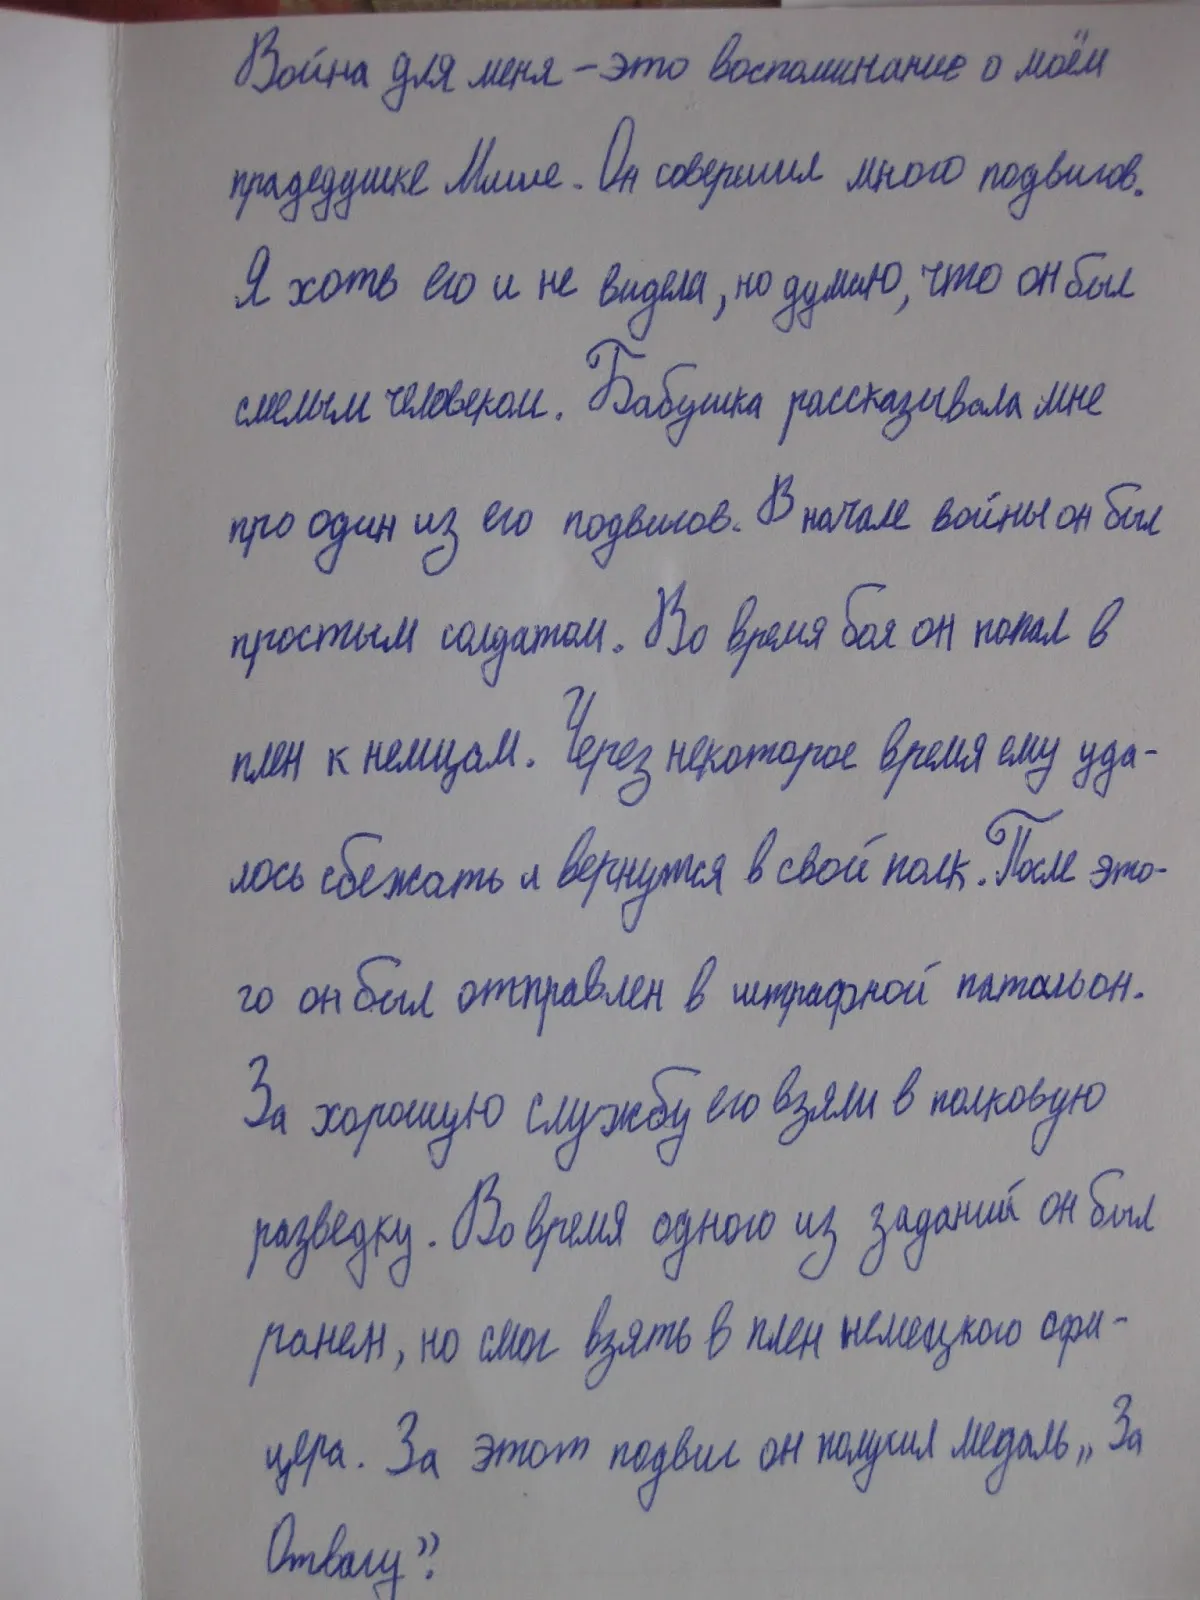 Война для меня – это воспоминание о моём
прадедушке Мише. Он совершил много подвигов.
Я хоть его и не видела, но думаю, что он был
смелым человеком. Бабушка рассказывала мне
про один из его подвигов. В начале войны он был
простым солдатом. Во время боя он попал в
плен к немцам. Через некоторое время ему уда-
лось сбежать и вернутся в свой полк. После это-
го он был отправлен в штрафной патальон.
За хорошую службу его взяли в полковую
разведку. Во время одного из заданий он был
ранен, но смог взять в плен немецкого офи-
цера. За этот подвиг он получил медаль „За
Отвагу”.